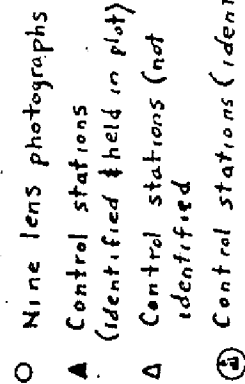 Nine lens photographs
Control stations
(identified & held in plot)
Control stations (not
identified
Control stations (iden